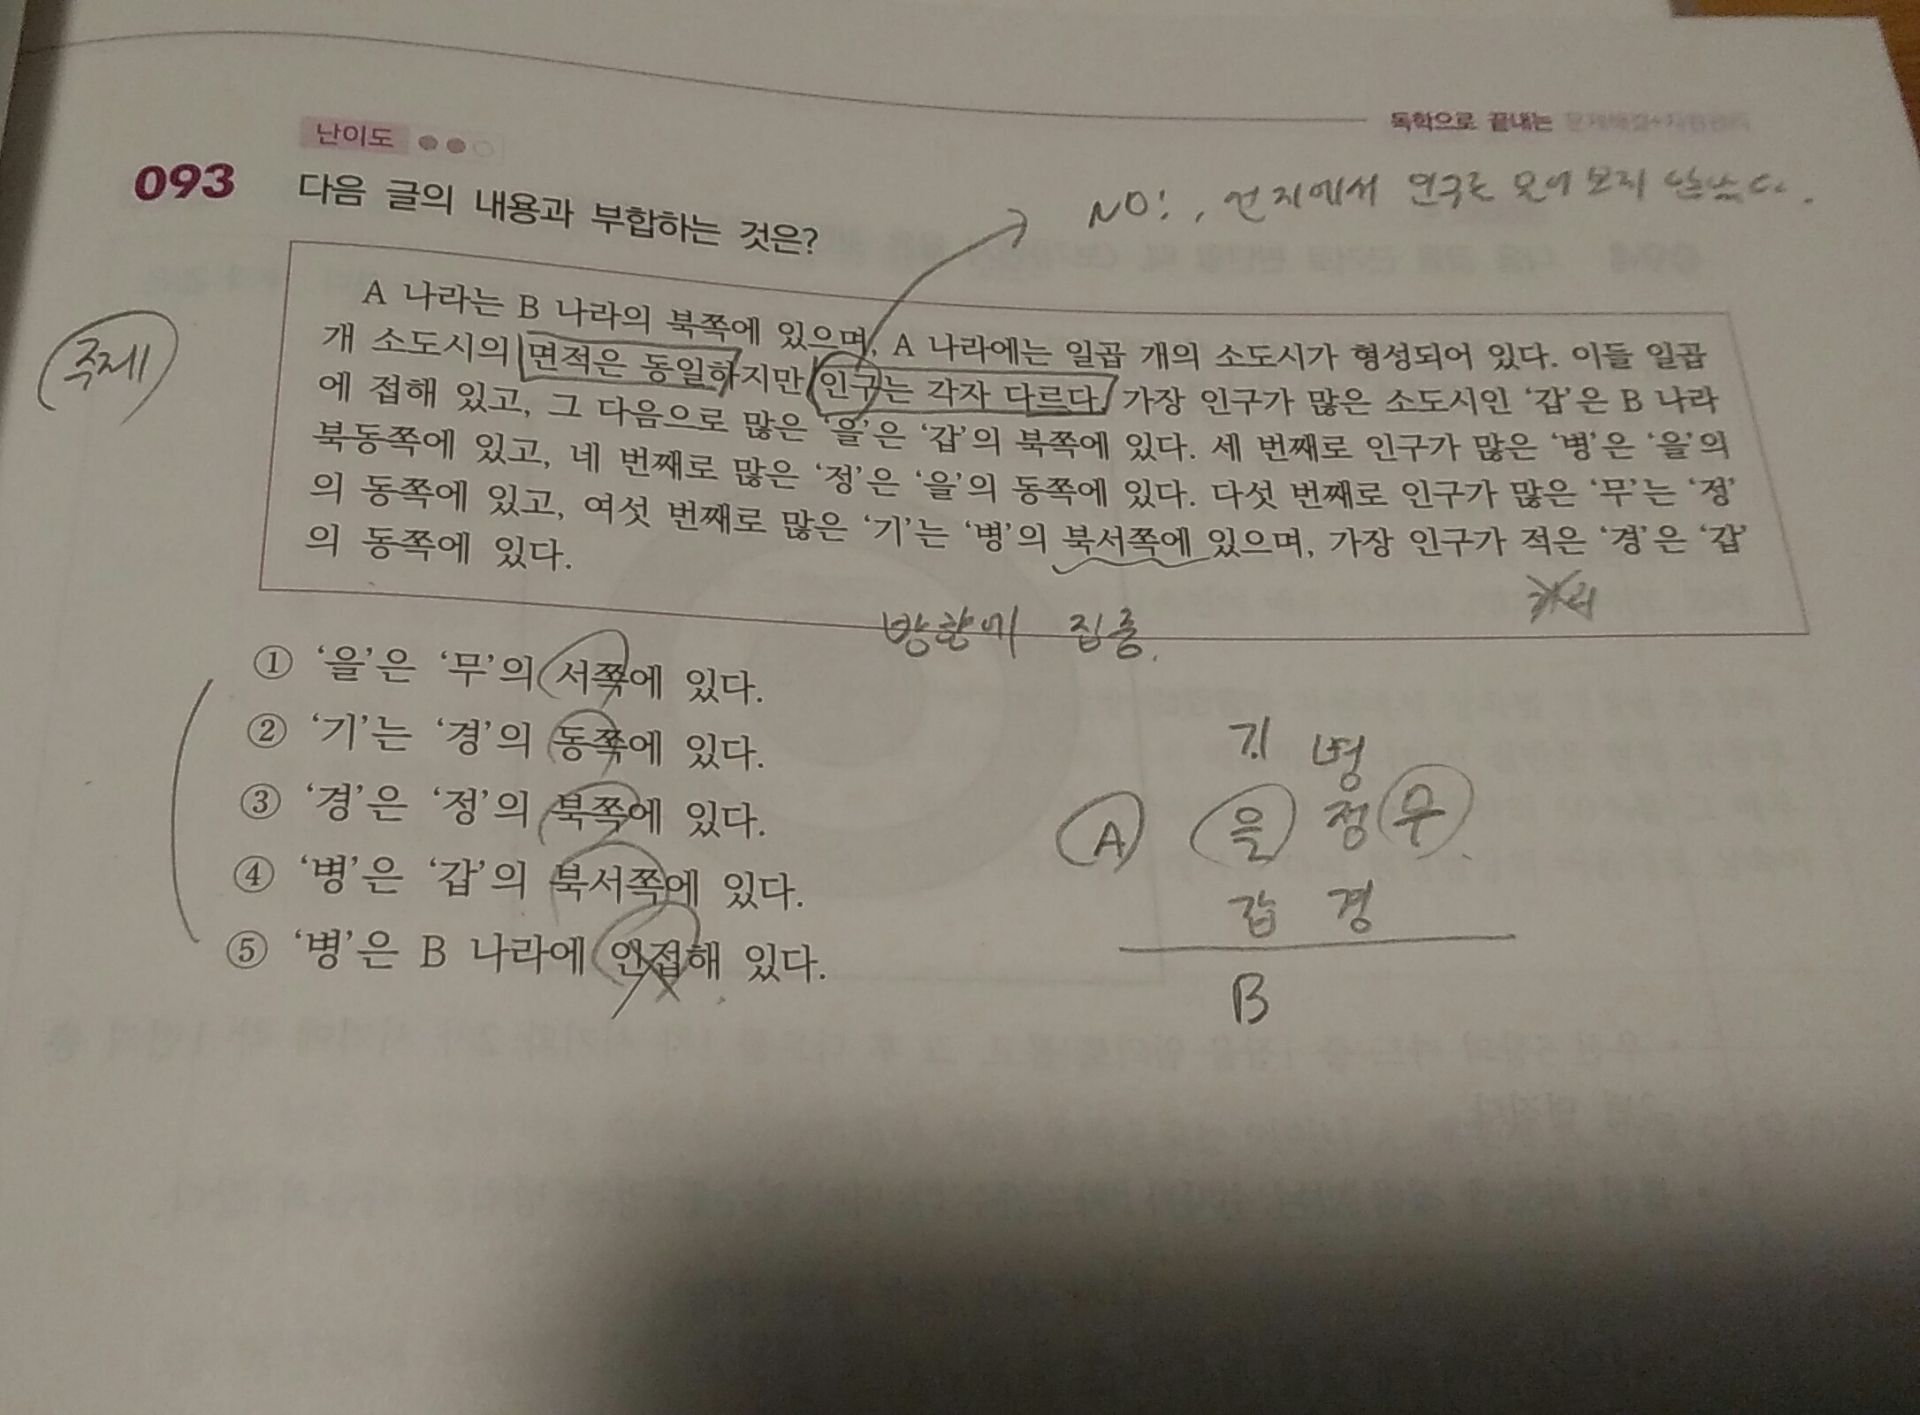 독학으로 끝내는
난이도
093 다음 글의 내용과 부합하는 것은?
NO!, 선지에서 인구는 물어보지 않았다.
주제
A 나라는 B 나라의 북쪽에 있으며, A 나라에는 일곱 개의 소도시가 형성되어 있다. 이들 일곱
개 소도시의 면적은 동일하지만 인구는 각자 다르다. 가장 인구가 많은 소도시인 '갑'은 B 나라
에 접해 있고, 그 다음으로 많은 '을'은 '갑'의 북쪽에 있다. 세 번째로 인구가 많은 '병'은 '을'의
북동쪽에 있고, 네 번째로 많은 '정'은 '을'의 동쪽에 있다. 다섯 번째로 인구가 많은 '무'는 '정'
의 동쪽에 있고, 여섯 번째로 많은 '기'는 '병'의 북서쪽에 있으며, 가장 인구가 적은 '경'은 '갑'
의 동쪽에 있다.
방향에 집중.
① '을'은 '무'의 서쪽에 있다.
② '기'는 '경'의 동쪽에 있다.
③ '경'은 '정'의 북쪽에 있다.
④ '병'은 '갑'의 북서쪽에 있다.
⑤ '병'은 B 나라에 인접해 있다.
기 병
A 을 정 무
갑 경
B